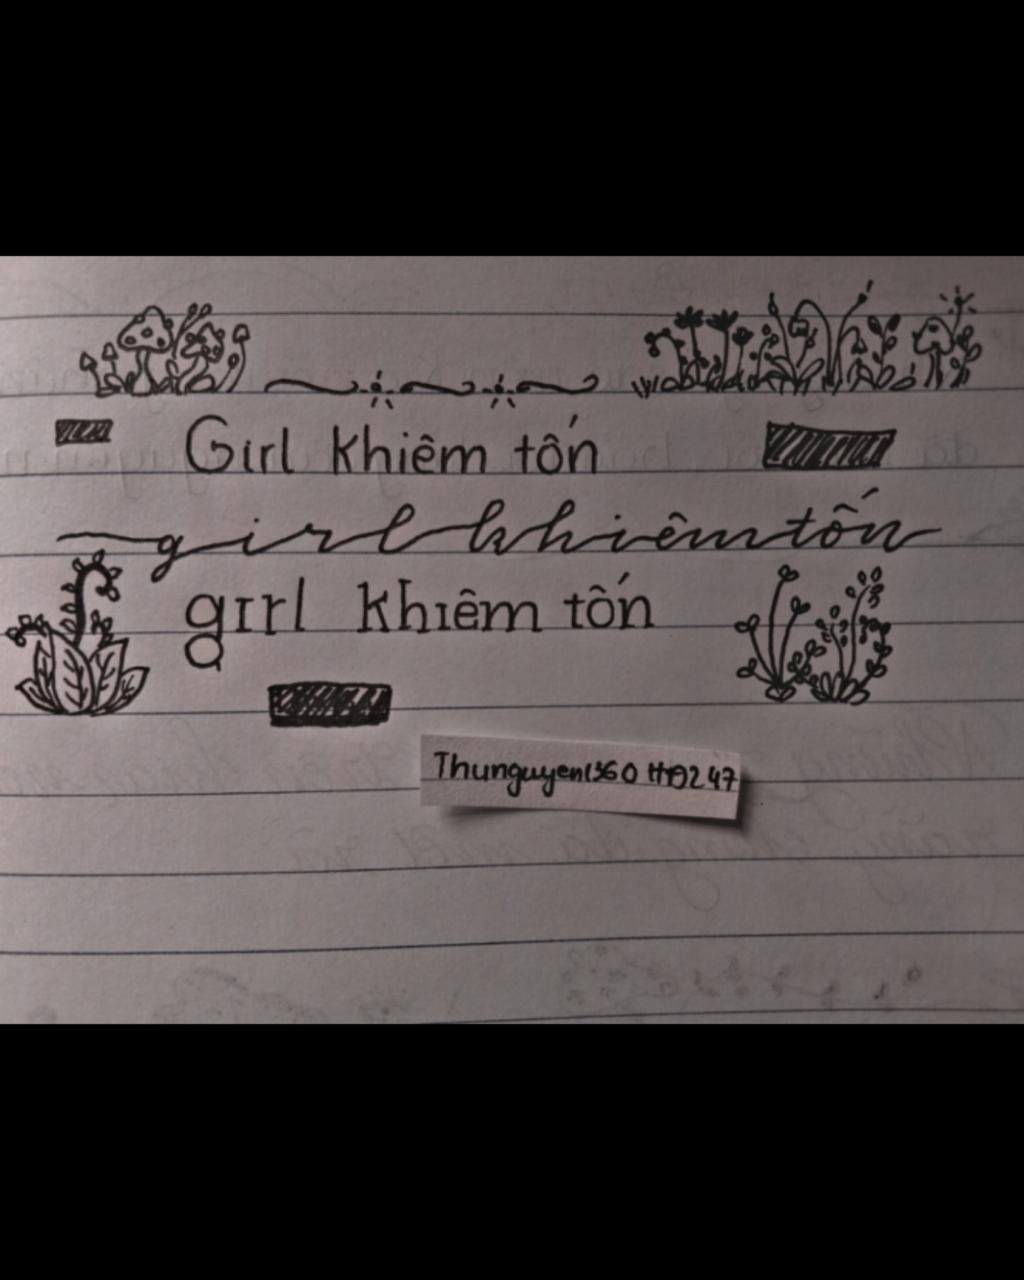 Girl khiêm tốn
girl khiêm tốn
girl khiêm tốn